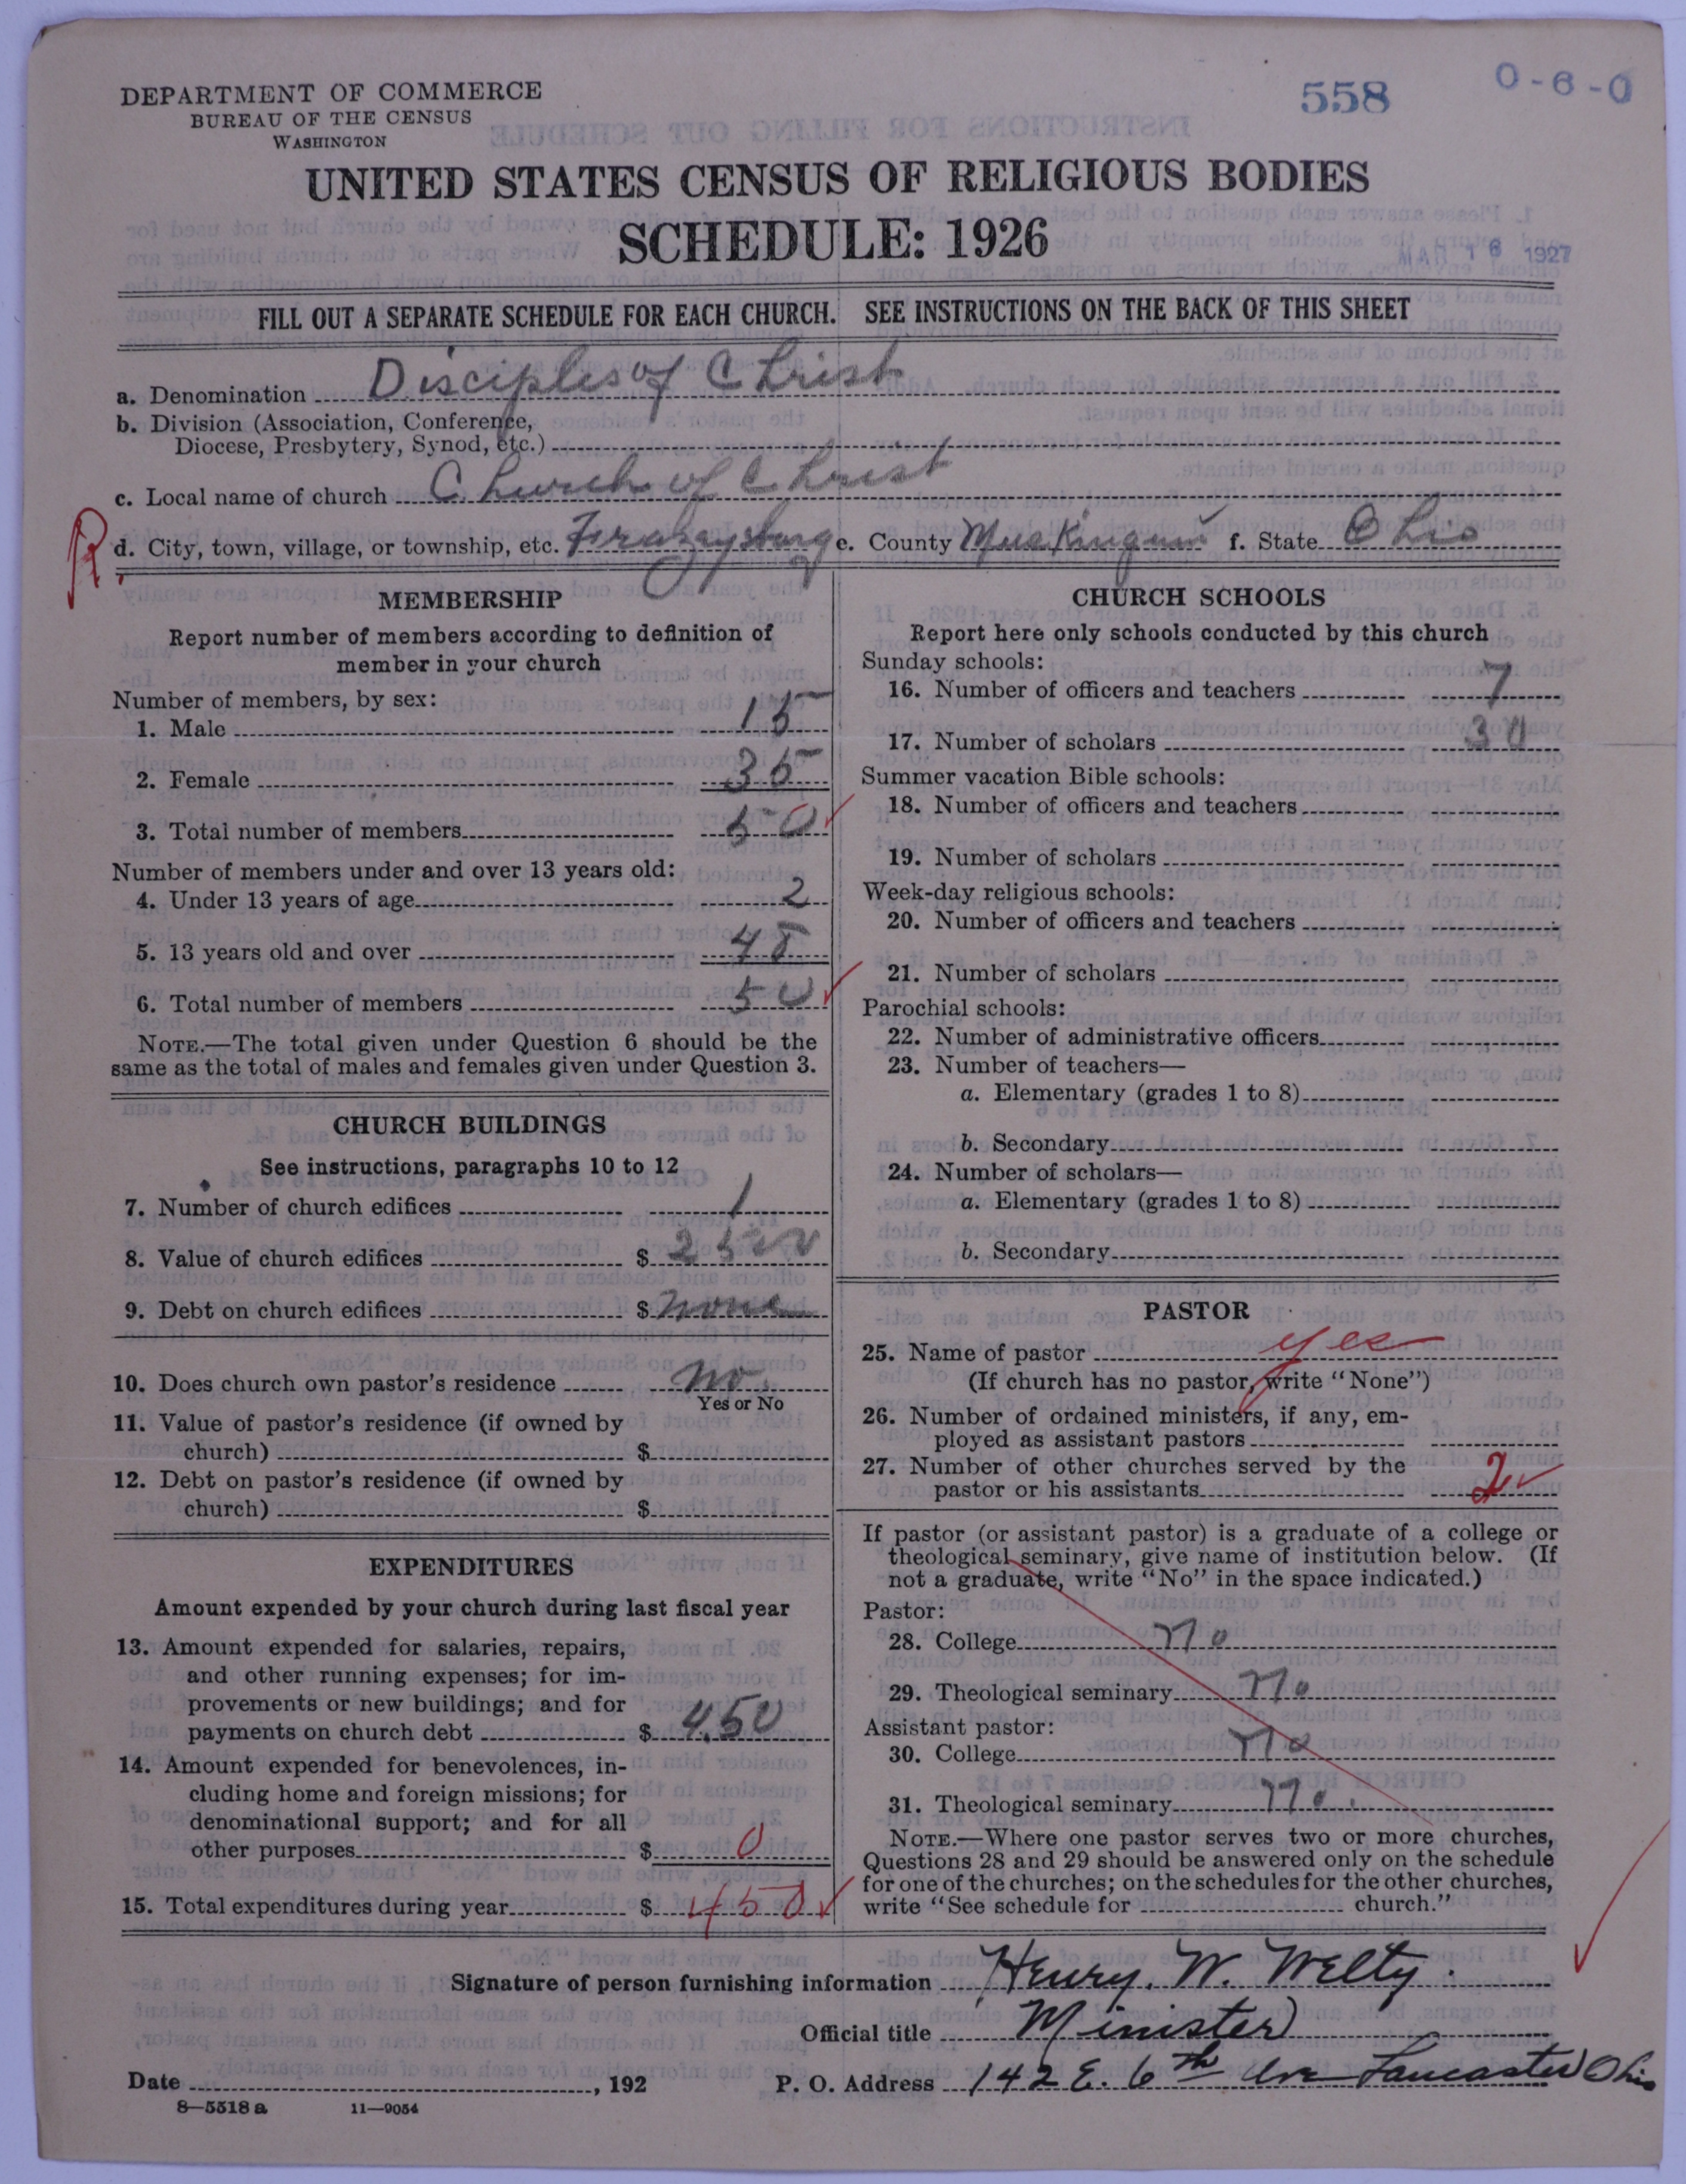 DEPARTMENT OF COMMERCE
BUREAU OF THE CENSUS
WASHINGTON
558
0-6-0
UNITED STATES CENSUS OF RELIGIOUS BODIES
SCHEDULE: 1926
MAR 16 1927
FILL OUT A SEPARATE SCHEDULE FOR EACH CHURCH. SEE INSTRUCTIONS ON THE BACK OF THIS SHEET
a. Denomination Disciples of Christ
b. Division (Association, Conference,
Diocese, Presbytery, Synod, etc.)
c. Local name of church Church of Christ
R.
d. City, town, village, or township, etc. Frazeysburg e. County Muskingum f. State Ohio
MEMBERSHIP
Report number of members according to definition of
member in your church
Number of members, by sex:
1. Male 15
2. Female 35
3. Total number of members 50 ✓
Number of members under and over 13 years old:
4. Under 13 years of age 2
5. 13 years old and over 48
6. Total number of members 50 ✓
NOTE.—The total given under Question 6 should be the
same as the total of males and females given under Question 3.
CHURCH BUILDINGS
See instructions, paragraphs 10 to 12
7. Number of church edifices 1
8. Value of church edifices $ 2500
9. Debt on church edifices $ none
10. Does church own pastor's residence no.
Yes or No
11. Value of pastor's residence (if owned by
church) $
12. Debt on pastor's residence (if owned by
church) $
EXPENDITURES
Amount expended by your church during last fiscal year
13. Amount expended for salaries, repairs,
and other running expenses; for im-
provements or new buildings; and for
payments on church debt $ 450
14. Amount expended for benevolences, in-
cluding home and foreign missions; for
denominational support; and for all
other purposes $ 0
15. Total expenditures during year $ 450 ✓
CHURCH SCHOOLS
Report here only schools conducted by this church
Sunday schools:
16. Number of officers and teachers 7
17. Number of scholars 30
Summer vacation Bible schools:
18. Number of officers and teachers
19. Number of scholars
Week-day religious schools:
20. Number of officers and teachers
21. Number of scholars
Parochial schools:
22. Number of administrative officers
23. Number of teachers—
a. Elementary (grades 1 to 8)
b. Secondary
24. Number of scholars—
a. Elementary (grades 1 to 8)
b. Secondary
PASTOR
25. Name of pastor yes
(If church has no pastor, write "None")
26. Number of ordained ministers, if any, em-
ployed as assistant pastors
27. Number of other churches served by the
pastor or his assistants 2 ✓
If pastor (or assistant pastor) is a graduate of a college or
theological seminary, give name of institution below. (If
not a graduate, write "No" in the space indicated.)
Pastor:
28. College No
29. Theological seminary No
Assistant pastor:
30. College No
31. Theological seminary No.
NOTE.—Where one pastor serves two or more churches,
Questions 28 and 29 should be answered only on the schedule
for one of the churches; on the schedules for the other churches,
write "See schedule for church."
Signature of person furnishing information Henry. W. Welty.
Official title Minister
Date , 192
P. O. Address 142 E. 6th Ave Lancaster Ohio
8—5518 a 11—9054